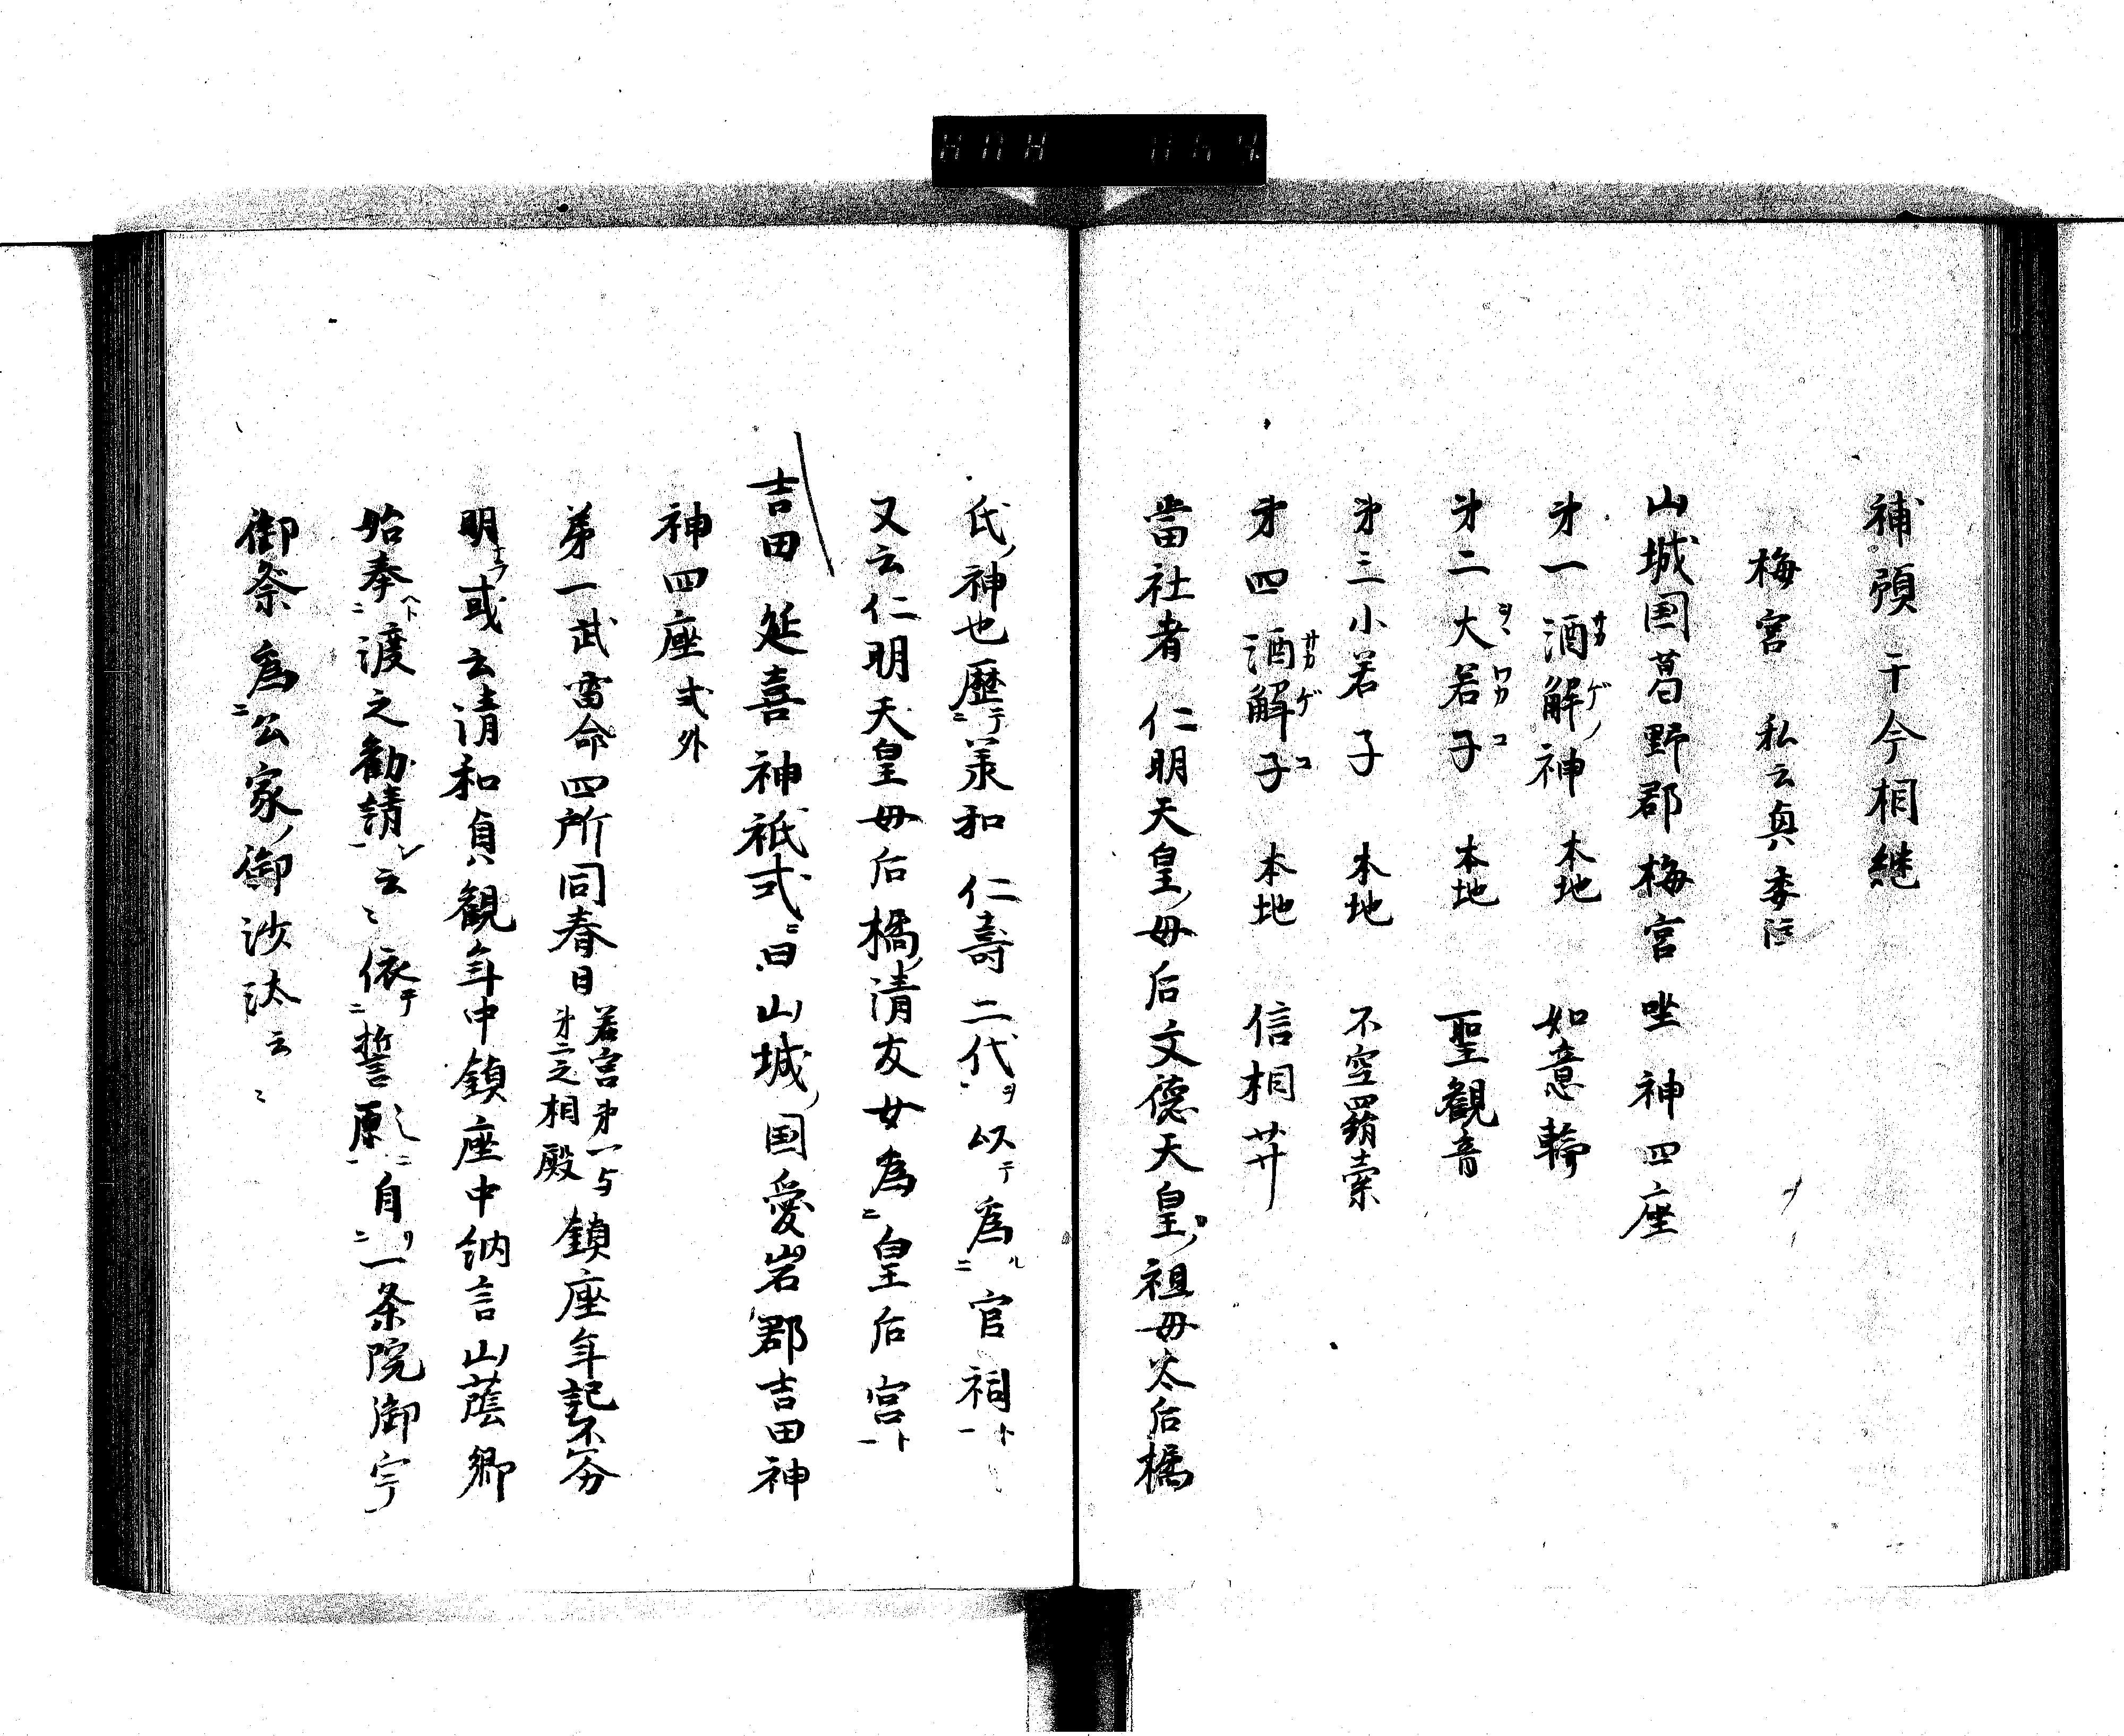 補預于今相継
梅宮 私云真委注
山城国葛野郡梅宮坐神四座
㐧一酒解神 本地 如意輪
㐧二大若子 本地 聖観音
㐧三小若子 本地 不空羂索
㐧四酒解子 本地 信相䒑
當社者仁明天皇ノ母后文徳天皇ノ祖母太后橘
氏ノ神也歴テ羕和仁壽二代ヲ以テ為ル官祠ト
又云仁明天皇母后橘ノ清友女為皇后宮ト
吉田 延喜神祇式ニ曰山城ノ国愛宕郡吉田神
神四座 式外
弟一武雷命四所同春日 若宮㐧一与㐧二之相殿 鎮座年記不分
明ナラ或云清和貞観年中鎮座中納言山蔭卿
始奉渡之勧請云〻依テ誓願ニ自リ一条院御宇
御祭為公家ノ御沙汰云〻